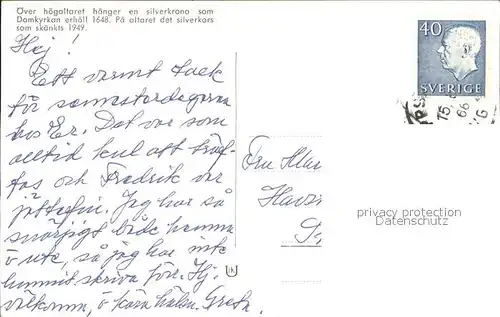 Över högaltaret hänger en silverkrona som
Domkyrkan erhåll 1648. På altaret det silverkors
som skänkts 1949.
Hej!
Ett varmt tack
för sommardagarna
hos Er. Det var som
alltid kul att träf-
fas och Fredrik var
jättefin. Jag har så
snörjigt både hemma
o ute, så jag har inte
hunnit skriva förr. Hj.
välkomna, o kära häln. Greta.
40
SVERIGE
Fru
privacy protection
Datenschutz
UN